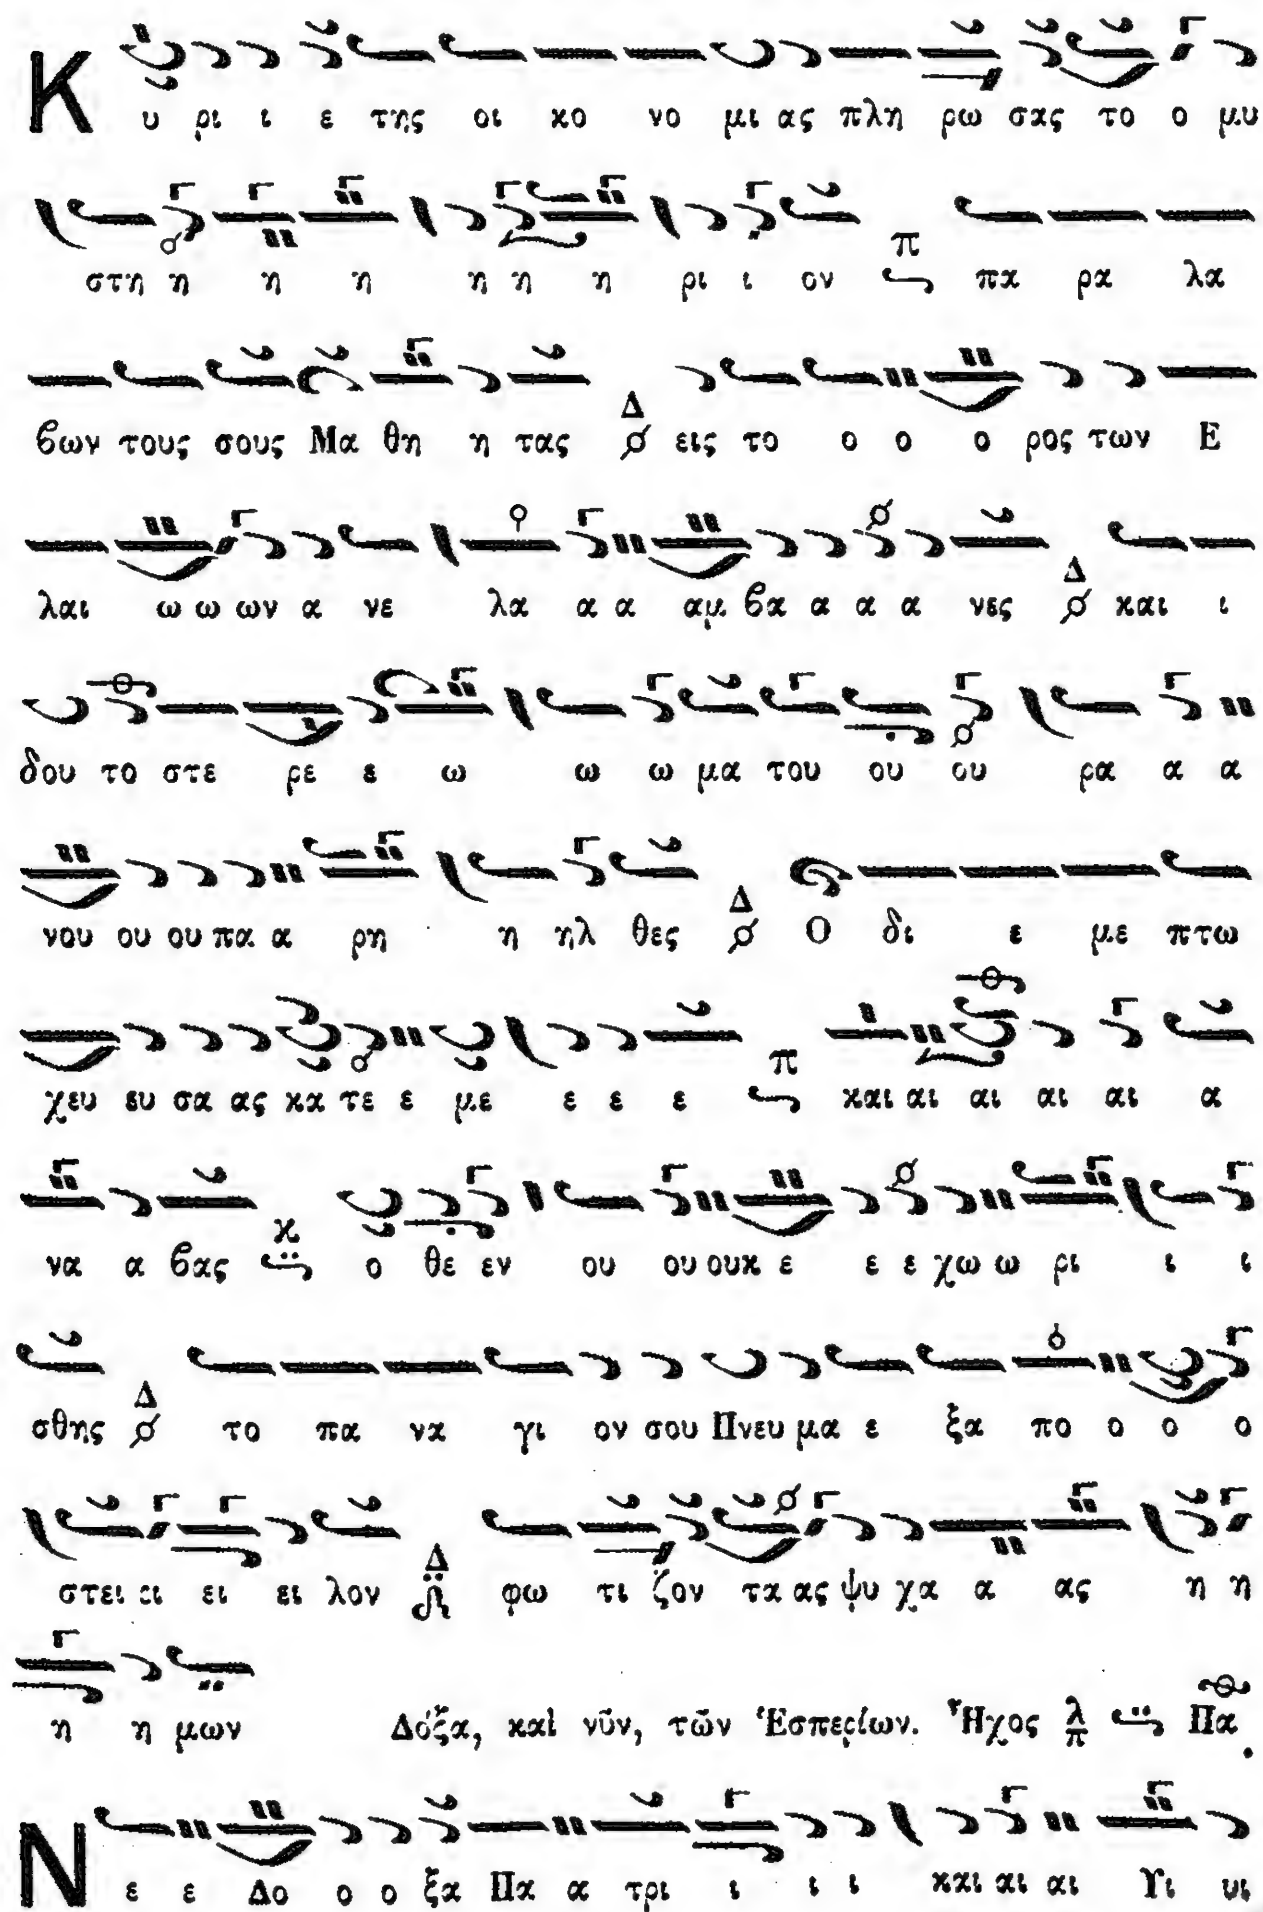 Κ υ ρι ι ε της οι κο νο μι ας πλη ρω σας το ο μυ
στη η η η η η η ρι ι ον π πα ρα λα
βων τους σους Μα θη η τας Δ εις το ο ο ο ρος των Ε
λαι ω ω ων α νε λα α α αμ βα α α α νες Δ και ι
δου το στε ρε ε ω ω ω μα του ου ου ρα α α
νου ου ου πα α ρη η ηλ θες Δ Ο δι ε με πτω
χευ ευ σα ας κα τε ε με ε ε ε π και αι αι αι αι α
να α βας κ ο θε εν ου ου ουκ ε ε ε χω ω ρι ι ι
σθης Δ το πα να γι ον σου Πνευ μα ε ξα πο ο ο ο
στει ει ει ει λον Δ φω τι ζον τα ας ψυ χα α ας η η
η η μων Δόξα, καὶ νῦν, τῶν Ἑσπερίων. Ἦχος λ π Πα
Ν ε ε Δο ο ο ξα Πα α τρι ι ι ι και αι αι Υι υι